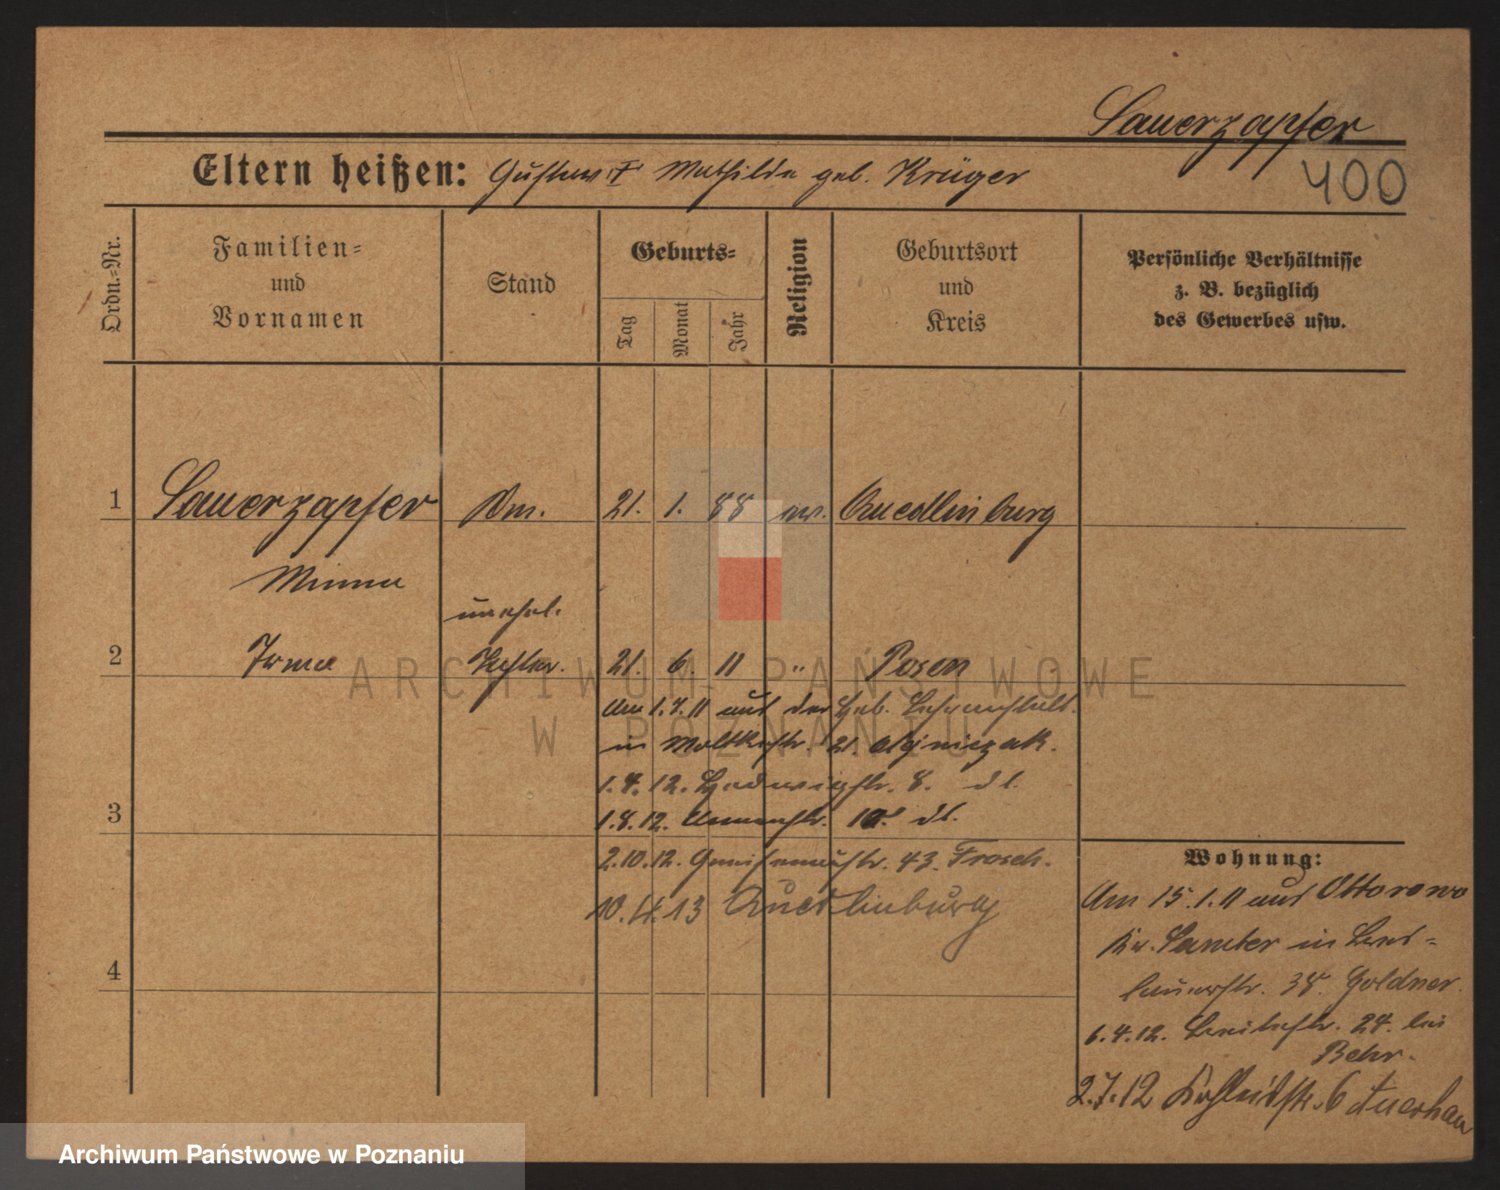 Sauerzapfer
400
Eltern heißen: Gustav † Mathilde geb. Krüger
Ordn.=Nr.
Familien=
und
Vornamen
Stand
Geburts=
Tag
Monat
Jahr
Religion
Geburtsort
und
Kreis
Persönliche Verhältnisse
z. B. bezüglich
des Gewerbes usw.
1 Sauerzapfer 21. 1. 88 ev. Quedlinburg
Minna
unehel.
2 Irma Tochter. 21. 6 11 " Posen
Am 1.7.11 aus der Heb. Lehranstalt.
in Moltkestr. 21.
1.4.12. Hedwigstr. 8. dt.
3
1.8.12. dt.
2.10.12. Gneisenaustr. 43. Frosch.
10.4.13 Quedlinburg
4
Wohnung:
Am 15.1.11 aus Ottorowo
Kr. Samter in Bres=
lauerstr. 38. Goldner.
6.4.12. Breitestr. 24. bei
Behr.
2.7.12 6 Auerhan
ARCHIWUM PAŃSTWOWE
W POZNANIU
Archiwum Państwowe w Poznaniu